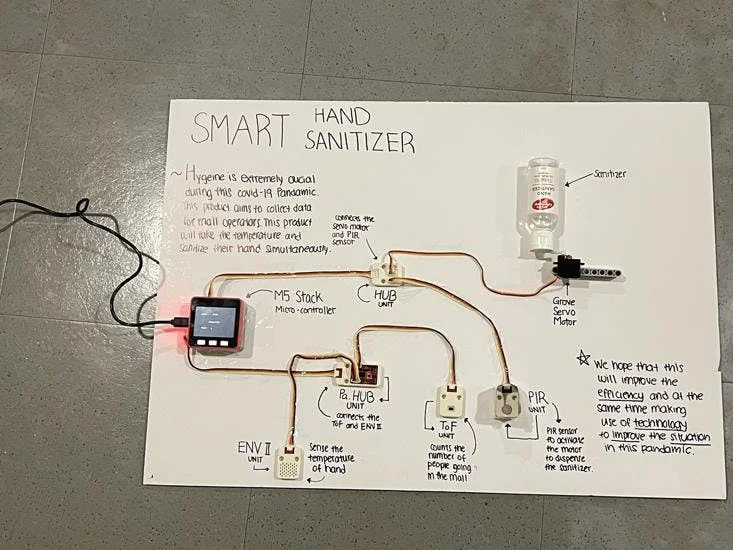 SMART HAND
SANITIZER
~ Hygiene is extremely crucial
during this covid-19 Pandamic.
This product aims to collect data
for mall operators. This product
will take the temperature and
sanitize their hand simultaneously.
connects the
servo motor
and PIR
sensor
HUB
UNIT
M5 Stack
Micro-controller
HAND
SANITIZER
Sanitizer
Grove
Servo
Motor
Pa.HUB
UNIT
connects the
ToF and ENV II
ENV II
UNIT
Sense the
temperature
of hand
ToF
UNIT
counts the
number of
people going
in the mall
PIR
UNIT
PIR sensor
to activate
the motor
to dispense
the sanitizer.
☆ We hope that this
will improve the
efficiency and at the
same time making
use of technology
to improve the situation
in this pandamic.